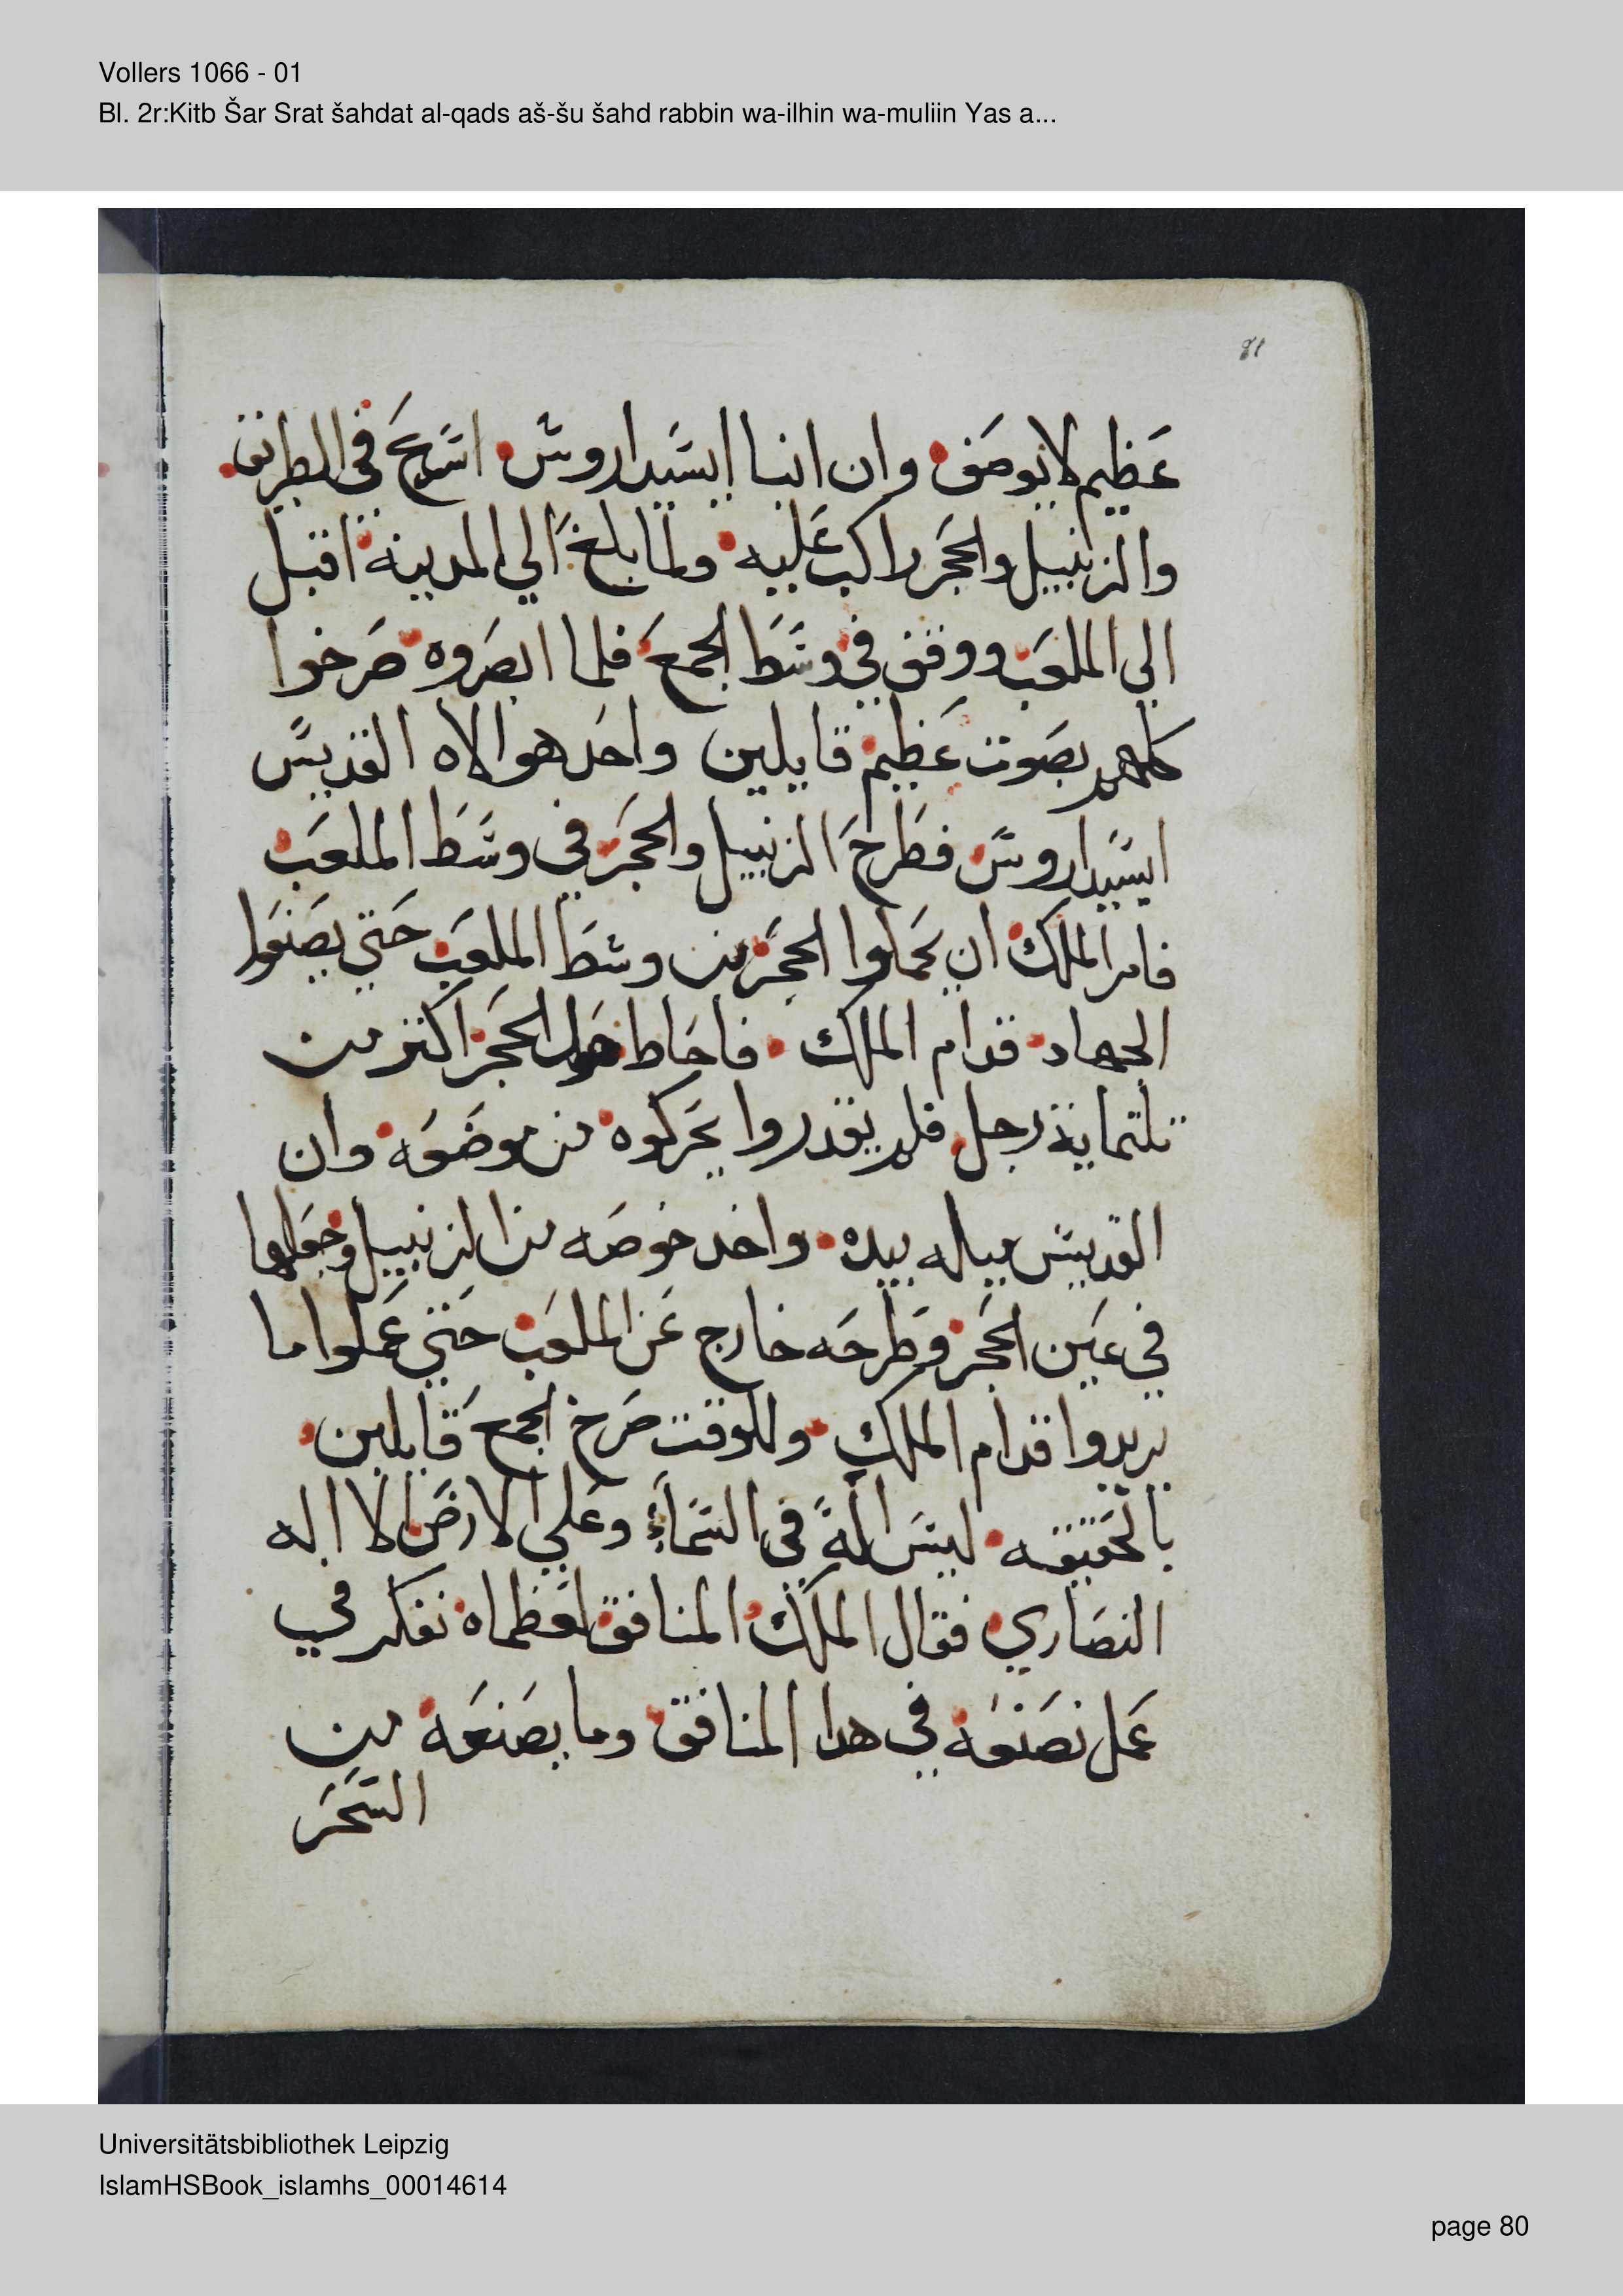 Vollers 1066 - 01
Bl. 2r:Kitb Šar Srat šahdat al-qads aš-šu šahd rabbin wa-ilhin wa-muliin Yas a...
81
عظيم لا يوصف وان انبا ايسيداروس اسرع في الطريق
والزنبيل والحجر راكب عليه ولما بلغ الي المدينة اقبل
الي الملعب ووقف في وسط الجمع فلما ابصروه صرخوا
كلهم بصوت عظيم قايلين واحد هو الاه القديس
ايسيداروس فطرح الزنبيل والحجر في وسط الملعب
فامر الملك ان يحملوا الحجر من وسط الملعب حتي يصنعوا
الجهاد قدام الملك فاحاط حول الحجر اكثر من
تلتماية رجل فلم يقدروا يحركوه من موضعه وان
القديس بيده واخد خوصه من الزنبيل وجعلها
في عين الحجر وطرحه خارج عن الملعب حتي عملوا ما
يريدوا قدام الملك وللوقت صرخ الجمع قايلين
بالحقيقه ليس اله في السماء وعلي الارض الا اله
النصاري فقال الملك المنافق لعظماه نفكر في
عمل نصنعه في هدا المنافق وما يصنعه من
السحر
Universitätsbibliothek Leipzig
IslamHSBook_islamhs_00014614
page 80